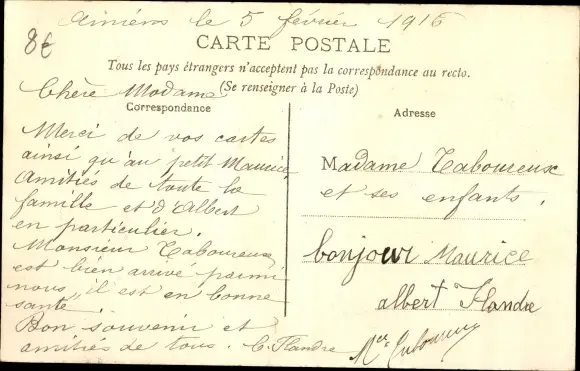 Amiens le 5 février 1916
8€
CARTE POSTALE
Tous les pays étrangers n'acceptent pas la correspondance au recto.
(Se renseigner à la Poste)
Correspondance
Chère Madame
Merci de vos cartes
ainsi qu'au petit Maurice,
Amitiés de toute la
famille et d'Albert
en particulier.
Monsieur Taboureux
est bien arrivé parmi
nous, il est en bonne
santé.
Bon souvenir et
amitiés de tous. C. Flandre
Adresse
Madame Taboureux
et ses enfants.
bonjour Maurice
albert Flandre